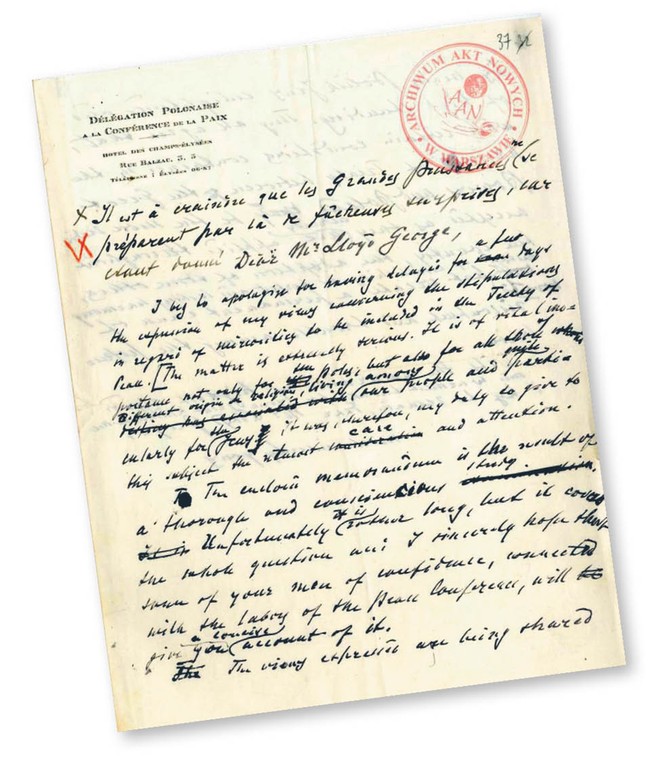 37
DÉLÉGATION POLONAISE
A LA CONFÉRENCE DE LA PAIX
HOTEL DES CHAMPS-ÉLYSÉES
RUE BALZAC, 3, 5
TÉLÉPHONE : ÉLYSÉES
ARCHIWUM AKT NOWYCH
AAN
W WARSZAWIE
X Il est à craindre que les Grandes Puissances se
préparent par là de fâcheuses surprises, car
étant donné Dear Mr Lloyd George,
a few
I beg to apologise for having delayed for days
the expression of my views concerning the stipulations
in regard of minorities to be included in the Treaty of
Peace. [The matter is extremely serious. It is of vital im-
portance not only for the Poles, but also for all those of
different origin or religion, living among
our people and quite partic-
ularly for the Jews, it was, therefore, my duty to give to
this subject the utmost care and attention.
The enclosed memorandum is the result of
a thorough and conscientious study.
Unfortunately it is rather long, but it covers
the whole question and I sincerely hope that
some of your men of confidence, connected
with the labors of the Peace Conference, will
give you a concise account of it.
The views expressed are being shared